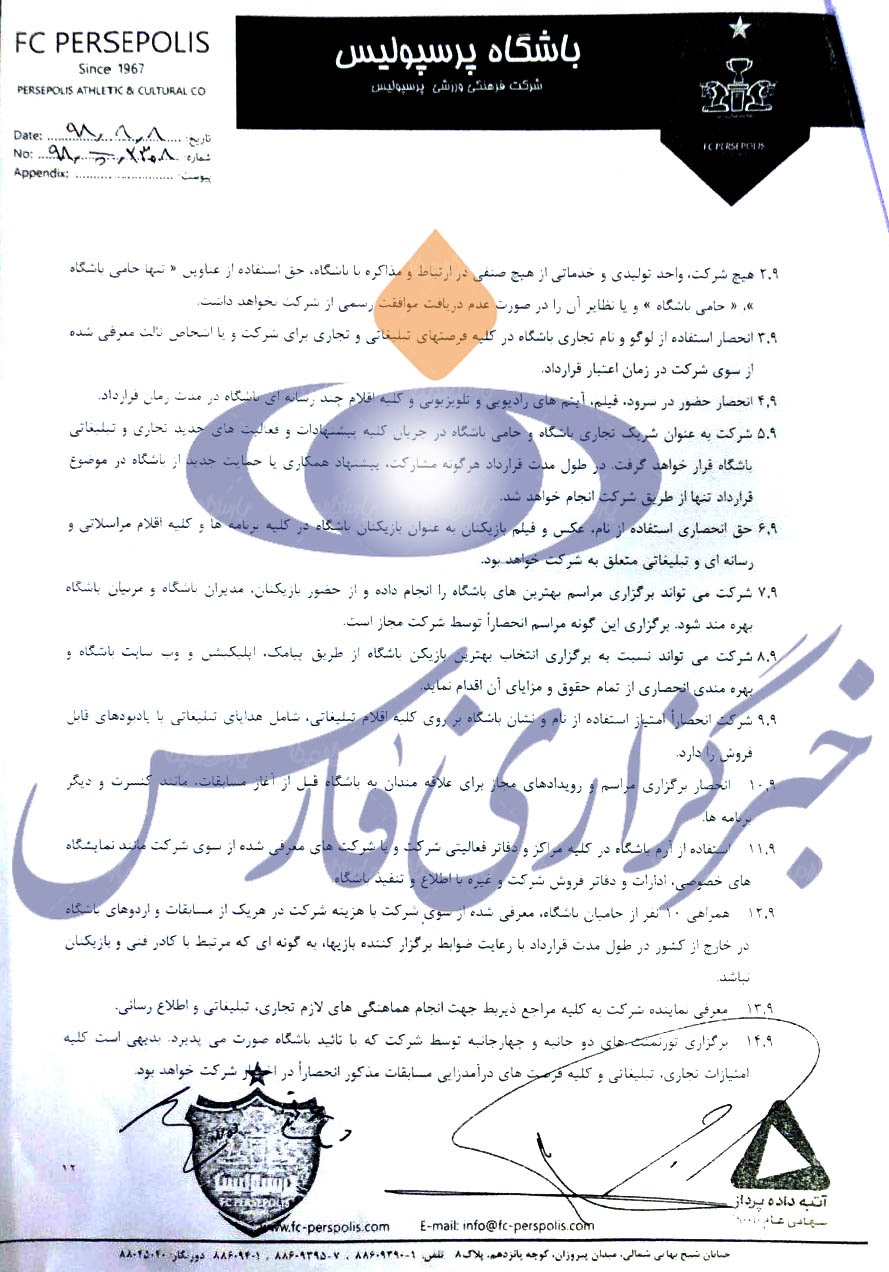 FC PERSEPOLIS
Since 1967
PERSEPOLIS ATHLETIC & CULTURAL CO
باشگاه پرسپولیس
شرکت فرهنگی ورزشی پرسپولیس
FC PERSEPOLIS
Date: ۹۸,۶,۸ تاریخ:
No: شماره:
Appendix: پیوست:
۲.۹ هیچ شرکت، واحد تولیدی و خدماتی از هیچ صنفی در ارتباط و مذاکره با باشگاه، حق استفاده از عناوین « تنها حامی باشگاه
»، « حامی باشگاه » و یا نظایر آن را در صورت عدم دریافت موافقت رسمی از شرکت نخواهد داشت.
۳.۹ انحصار استفاده از لوگو و نام تجاری باشگاه در کلیه فرصتهای تبلیغاتی و تجاری برای شرکت و یا اشخاص ثالث معرفی شده
از سوی شرکت در زمان اعتبار قرارداد.
۴.۹ انحصار حضور در سرود، فیلم، آیتم های رادیویی و تلویزیونی و کلیه اقلام چند رسانه ای باشگاه در مدت زمان قرارداد.
۵.۹ شرکت به عنوان شریک تجاری باشگاه و حامی باشگاه در جریان کلیه پیشنهادات و فعالیت های جدید تجاری و تبلیغاتی
باشگاه قرار خواهد گرفت. در طول مدت قرارداد هرگونه مشارکت، پیشنهاد همکاری یا حمایت جدید از باشگاه در موضوع
قرارداد تنها از طریق شرکت انجام خواهد شد.
۶.۹ حق انحصاری استفاده از نام، عکس و فیلم بازیکنان به عنوان بازیکنان باشگاه در کلیه برنامه ها و کلیه اقلام مراسلاتی و
رسانه ای و تبلیغاتی متعلق به شرکت خواهد بود.
۷.۹ شرکت می تواند برگزاری مراسم بهترین های باشگاه را انجام داده و از حضور بازیکنان، مدیران باشگاه و مربیان باشگاه
بهره مند شود. برگزاری این گونه مراسم انحصاراً توسط شرکت مجاز است.
۸.۹ شرکت می تواند نسبت به برگزاری انتخاب بهترین بازیکن باشگاه از طریق پیامک، اپلیکیشن و وب سایت باشگاه و
بهره مندی انحصاری از تمام حقوق و مزایای آن اقدام نماید.
۹.۹ شرکت انحصاراً امتیاز استفاده از نام و نشان باشگاه بر روی کلیه اقلام تبلیغاتی، شامل هدایای تبلیغاتی یا یادبودهای قابل
فروش را دارد.
۱۰.۹ انحصار برگزاری مراسم و رویدادهای مجاز برای علاقه مندان به باشگاه قبل از آغاز مسابقات، مانند کنسرت و دیگر
برنامه ها.
۱۱.۹ استفاده از آرم باشگاه در کلیه مراکز و دفاتر فعالیتی شرکت و یا شرکت های معرفی شده از سوی شرکت مانند نمایشگاه
های خصوصی، ادارات و دفاتر فروش شرکت و غیره با اطلاع و تنفیذ باشگاه.
۱۲.۹ همراهی ۱۰ نفر از حامیان باشگاه، معرفی شده از سوی شرکت با هزینه شرکت در هریک از مسابقات و اردوهای باشگاه
در خارج از کشور در طول مدت قرارداد با رعایت ضوابط برگزار کننده بازیها، به گونه ای که مرتبط با کادر فنی و بازیکنان
نباشد.
۱۳.۹ معرفی نماینده شرکت به کلیه مراجع ذیربط جهت انجام هماهنگی های لازم تجاری، تبلیغاتی و اطلاع رسانی.
۱۴.۹ برگزاری تورنمنت های دو جانبه و چهارجانبه توسط شرکت که با تائید باشگاه صورت می پذیرد. بدیهی است کلیه
امتیازات تجاری، تبلیغاتی و کلیه فرصت های درآمدزایی مسابقات مذکور انحصاراً در اختیار شرکت خواهد بود.
خبرگزاری فارس
۱۲
FC PERSEPOLIS
آتیه داده پرداز
سهامی عام
www.fc-perspolis.com E-mail: info@fc-perspolis.com
خیابان شیخ بهایی شمالی، میدان پیروزان، کوچه پانزدهم، پلاک ۸ تلفن: ۱-۸۸۶۰۹۳۹۰ ، ۷-۸۸۶۰۹۳۹۵ ، ۸۸۶۰۹۴۰۱ دورنگار: ۸۸۰۴۵۰۴۰